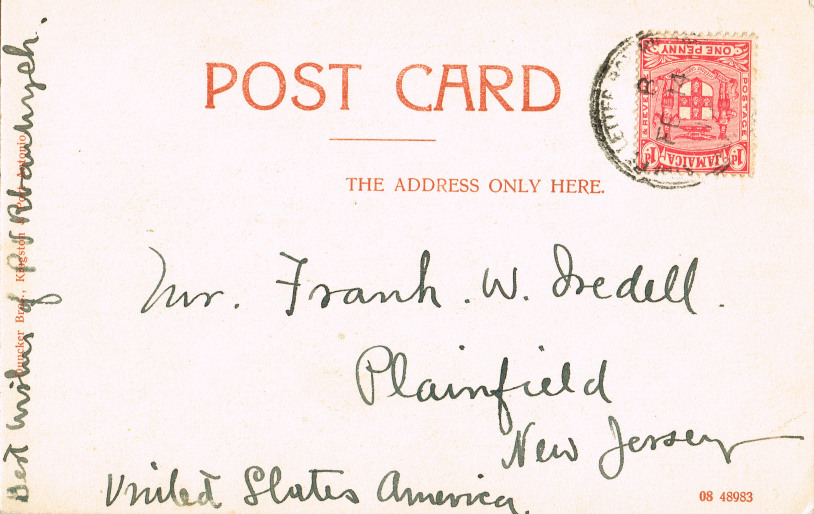 POST CARD
THE ADDRESS ONLY HERE.
ONE PENNY
POSTAGE
& REVE
JAMAICA
1D
1D
LETTER
Mr. Frank. W. Iredell.
Plainfield
New Jersey
United States America.
Best wishes of
Bros., Kingston Port Antonio
08 48983